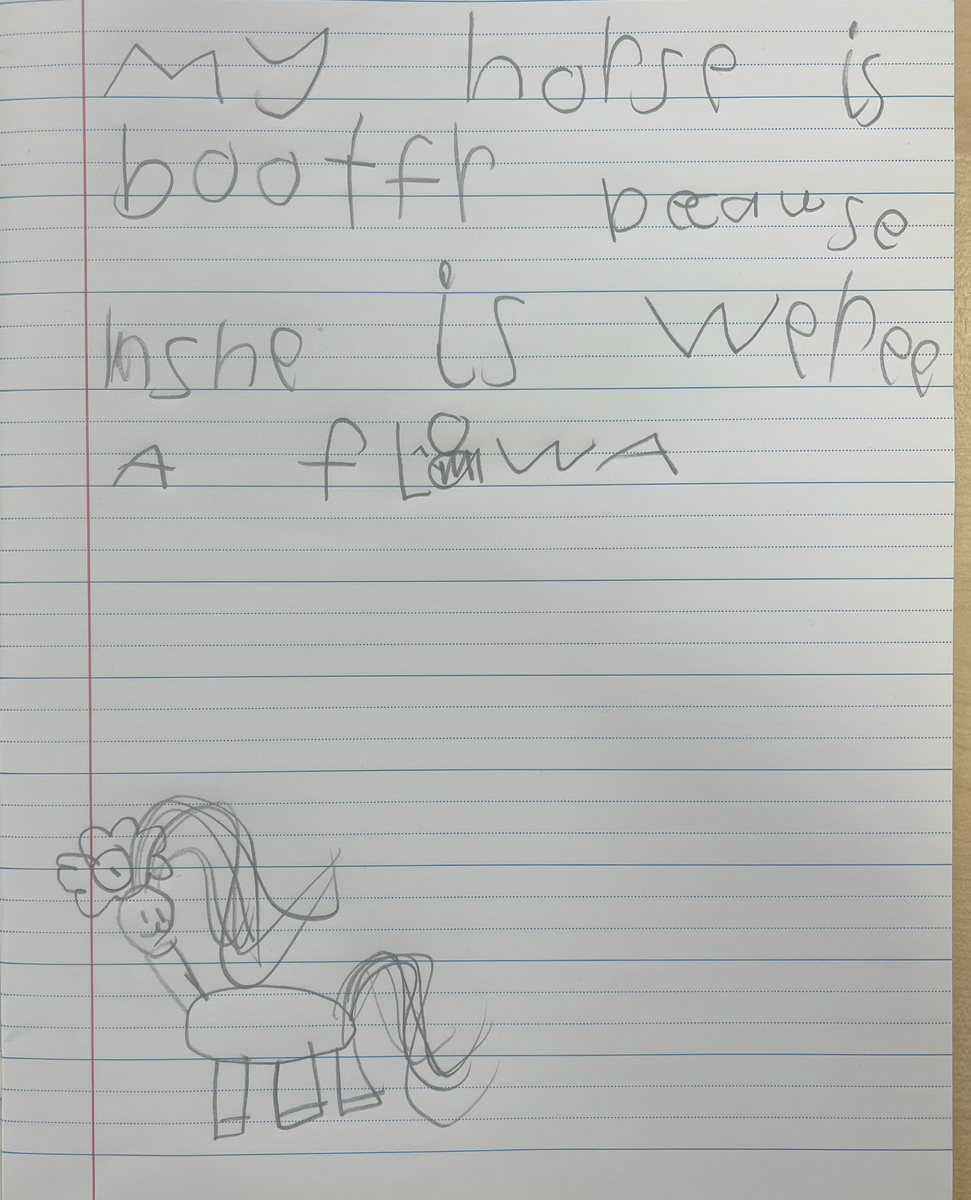 My horse is
bootfr because
she is weree
A fLowA